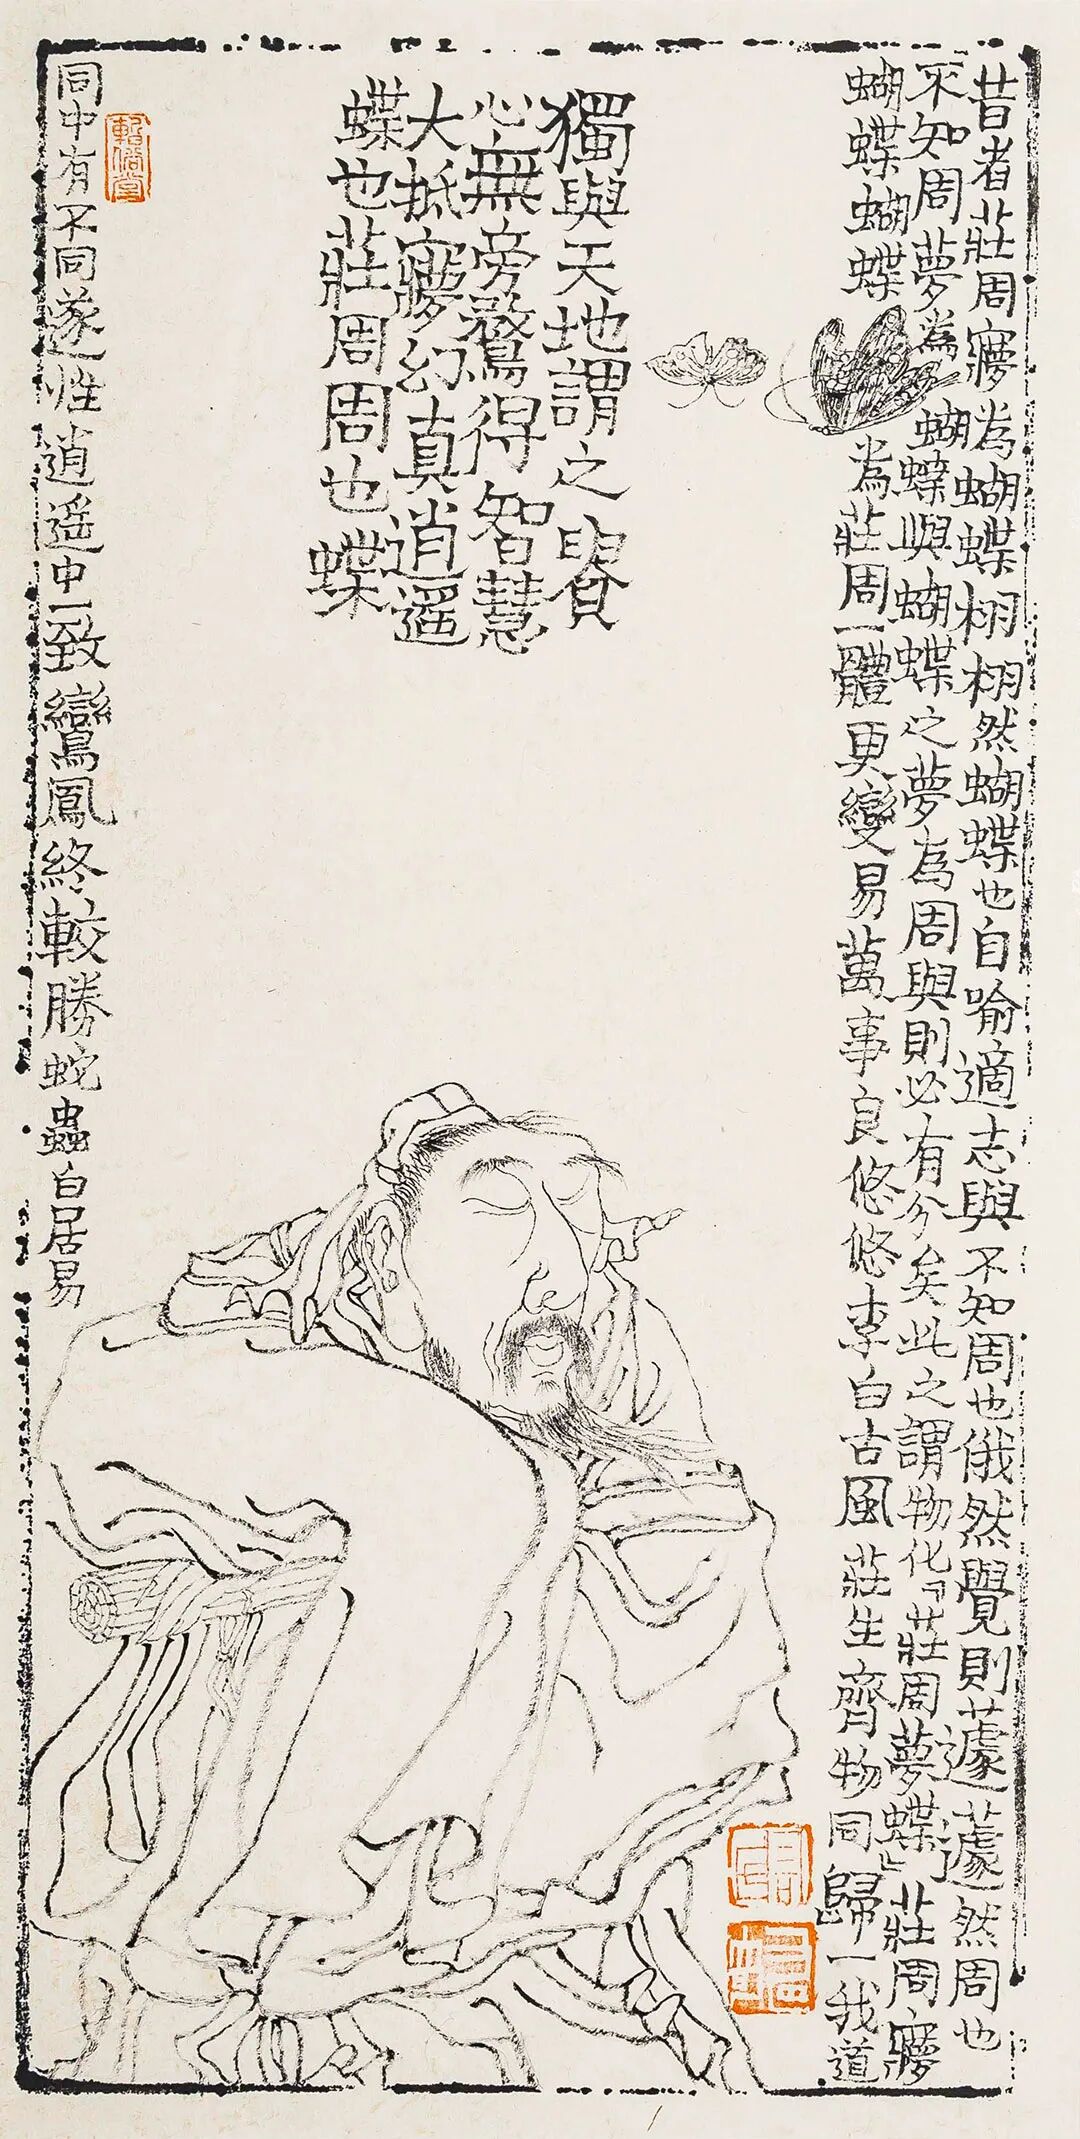 昔者莊周寢為蝴蝶栩栩然蝴蝶也自喻適志與不知周也俄然覺則蘧蘧然周也
不知周夢為蝴蝶與蝴蝶之夢為周與則必有分矣此之謂物化『莊周夢蝶』莊周寢
蝴蝶蝴蝶為莊周一體更變易萬事良悠悠李白古風莊生齊物同歸一我道
獨與天地謂之賢
心無旁騖得智慧
大抵寢幻真逍遙
蝶也莊周周也蝶
同中有不同遂性逍遥中一致鸞鳳終較勝蛇蟲白居易